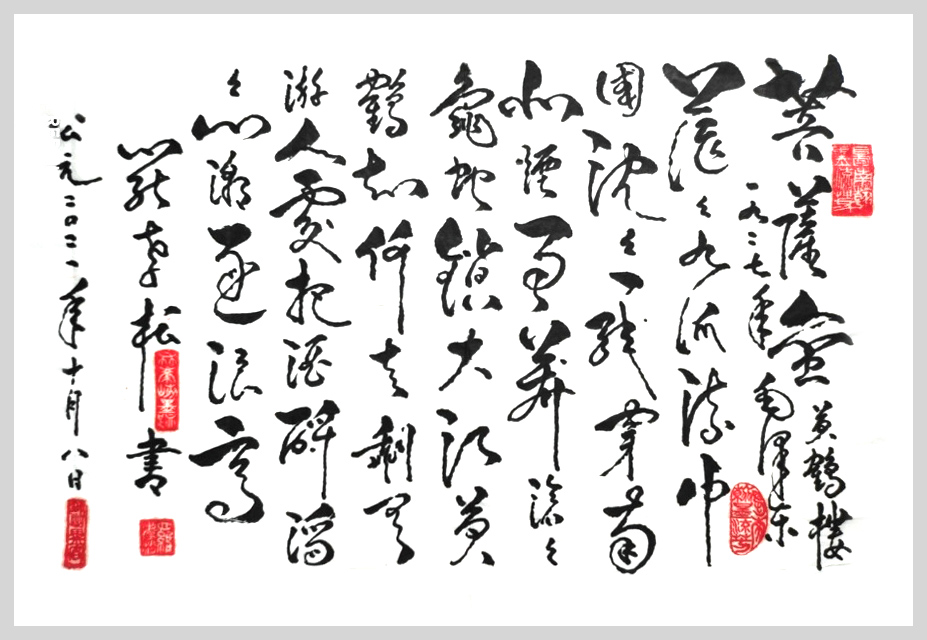 菩薩蠻 黄鶴樓
一九二七年 毛澤東
茫々九派流中
國沈々一綫穿南
北煙雨莽滄々
龜蛇鎖大江黄
鶴知何去剩有
游人處把酒酹滔
々心潮逐浪高
孝松書
公元二〇二一年十月八日